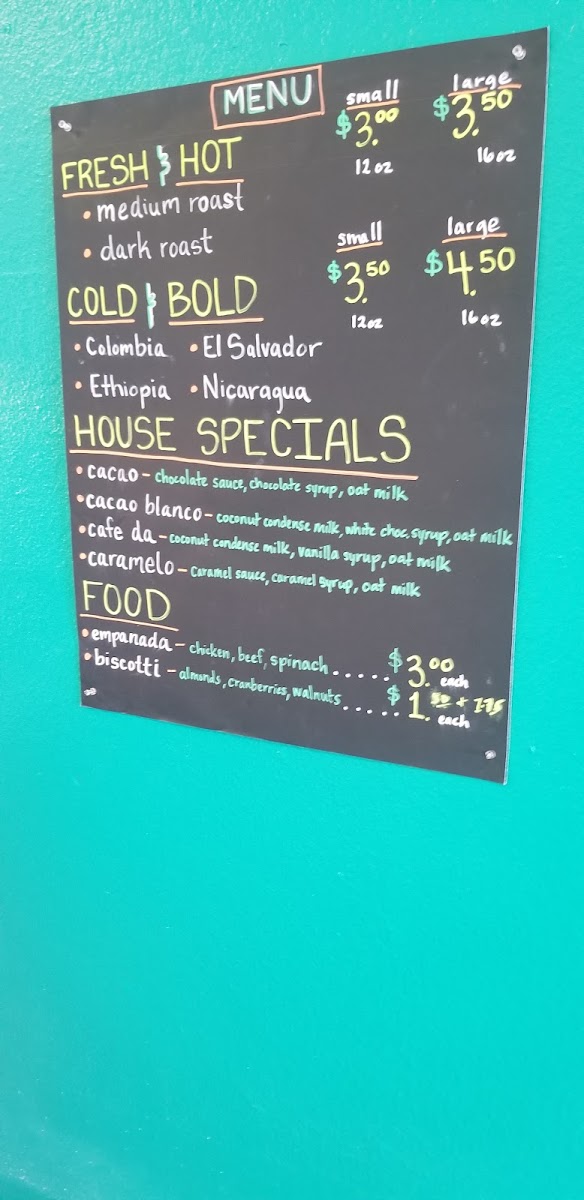 MENU
small large
$3.00 $3.50
12 oz 16 oz
FRESH & HOT
• medium roast
• dark roast
small large
$3.50 $4.50
12oz 16oz
COLD & BOLD
• Colombia • El Salvador
• Ethiopia • Nicaragua
HOUSE SPECIALS
• cacao – chocolate sauce, chocolate syrup, oat milk
• cacao blanco – coconut condense milk, white choc. syrup, oat milk
• cafe da – coconut condense milk, vanilla syrup, oat milk
• caramelo – caramel sauce, caramel syrup, oat milk
FOOD
• empanada – chicken, beef, spinach ..... $3.00 each
• biscotti – almonds, cranberries, walnuts ..... $1. each